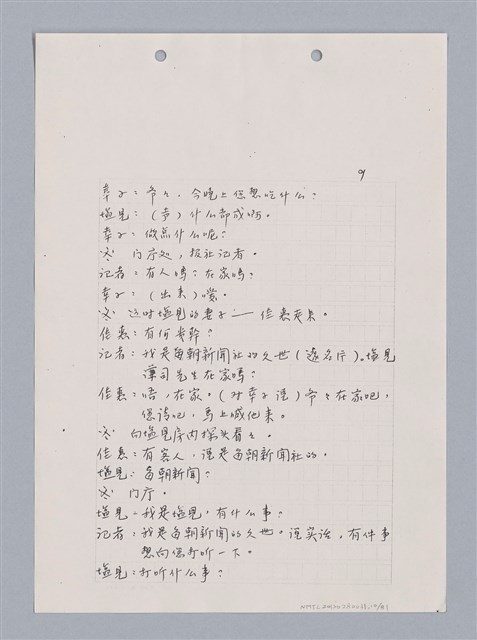 9
幸子：爷々，今晚上您想吃什么？
塩見：（声）什么都成啊。
幸子：做点什么呢？
※ 门厅处，报社记者。
记者：有人吗？在家吗？
幸子：（出来）嗳。
※ 这时塩見的妻子——佳恵走来。
佳恵：有何贵幹？
记者：我是每朝新闻社的久世（递名片）。塩見
薄司先生在家吗？
佳恵：唔，在家。（对幸子说）爷々在家吧，
您请吧，马上喊他来。
※ 向塩見房内探头看々。
佳恵：有客人，说是每朝新闻社的。
塩見：每朝新闻？
※ 门厅。
塩見：我是塩見，有什么事？
记者：我是每朝新闻的久世。说实话，有件事
想向您打听一下。
塩見：打听什么事？